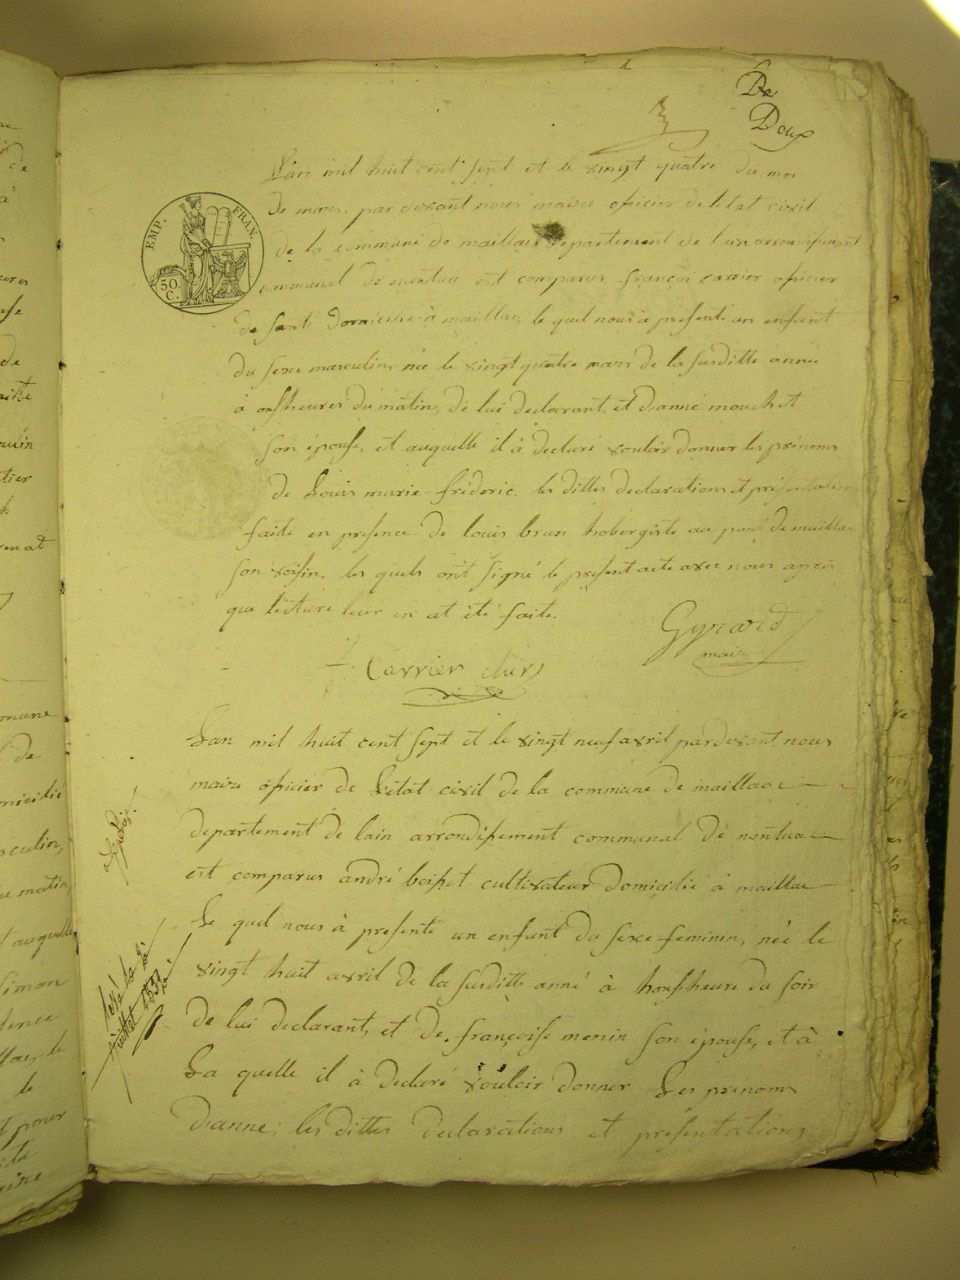 De
Doux
EMP. FRAN.
50 C.
L'an mil huit cent sept et le vingt quatre du moi
De mars, par devant nous maire oficier de l'etat civil
de la commune de maillat departement de l'ain arrondissement
communal de nantua est comparus françoi carrier oficier
De santé Domicilié à maillac, le quel nous à presenté un enfant
du sexe masculin, née le vingt quatre mars de la susditte année
à onsheures du matin, de lui declarant, et d'anne mouchet
son épouse, et auquelle il à declaré vouloir donner les prénoms
de Louis marie frédéric. les dittes declarations et présentations
faite en presence de louis brun hobergiste au pont de maillac
son voisin. les quels ont signé le présent acte avec nous après
que lecture leur en at été faite.
Gyrard
maire
Carrier chirs
L'an mil huit cent sept et le vingt neuf avril pardevant nous
maire oficier de L'état civil de la commune de maillac
departement de lain arrondissement communal de nantua
est comparus andré boisset cultivateur domicilié à maillac
Le quel nous à presenté un enfant du sexe feminin, née le
vingt huit avril de la susditte anné à honsheure du soir
De lui declarant, et de françoise menin son épouse, et à
La quelle il à declaré vouloir donner Les prenoms
D'anne; les dittes declarations et présentations
juillet 1853